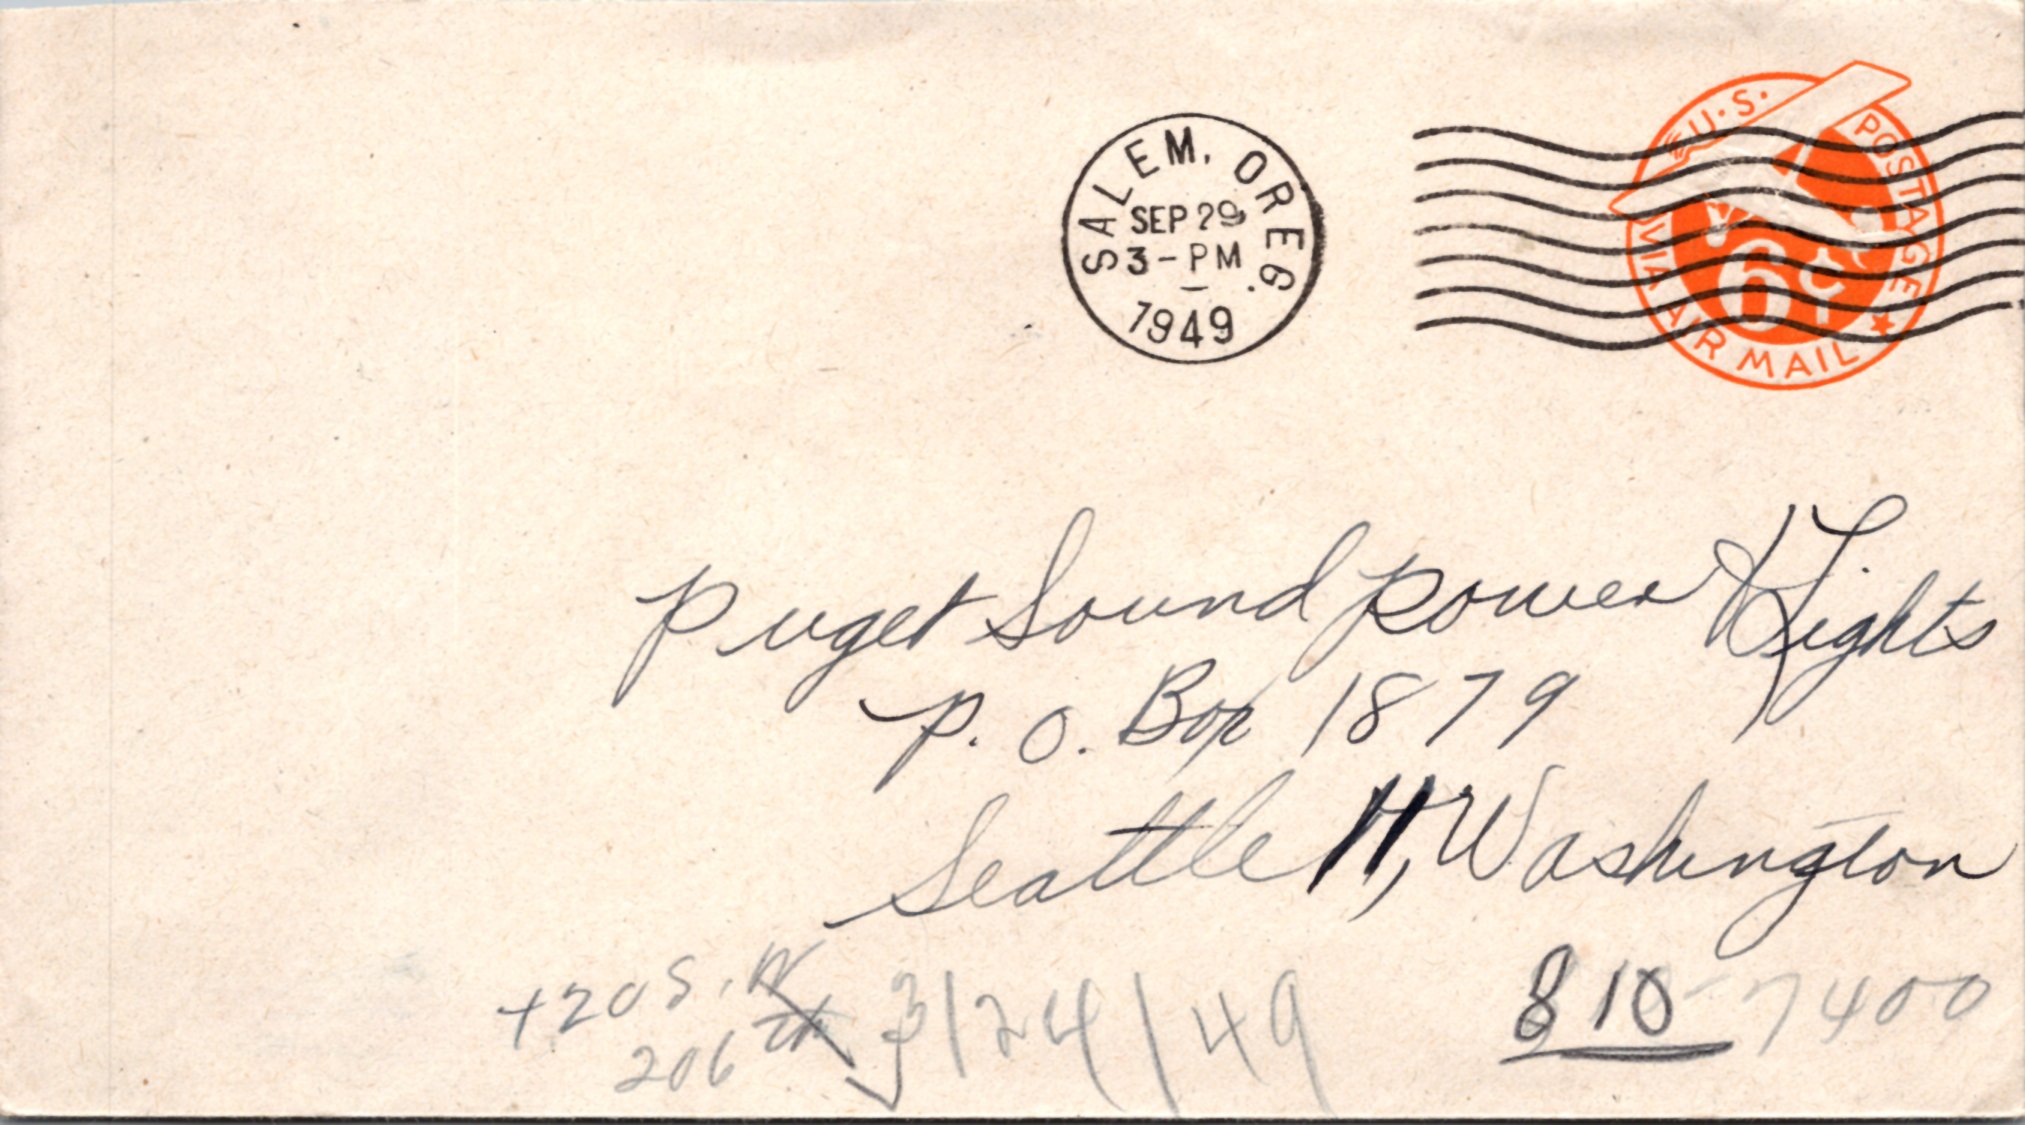 SALEM, OREG.
SEP 29
3-PM
1949
U.S. POSTAGE
6¢
VIA AIR MAIL
Puget Sound Power & Lights
P. O. Box 1879
Seattle 11, Washington
420 S.W
206th
3/24/49
810-7400